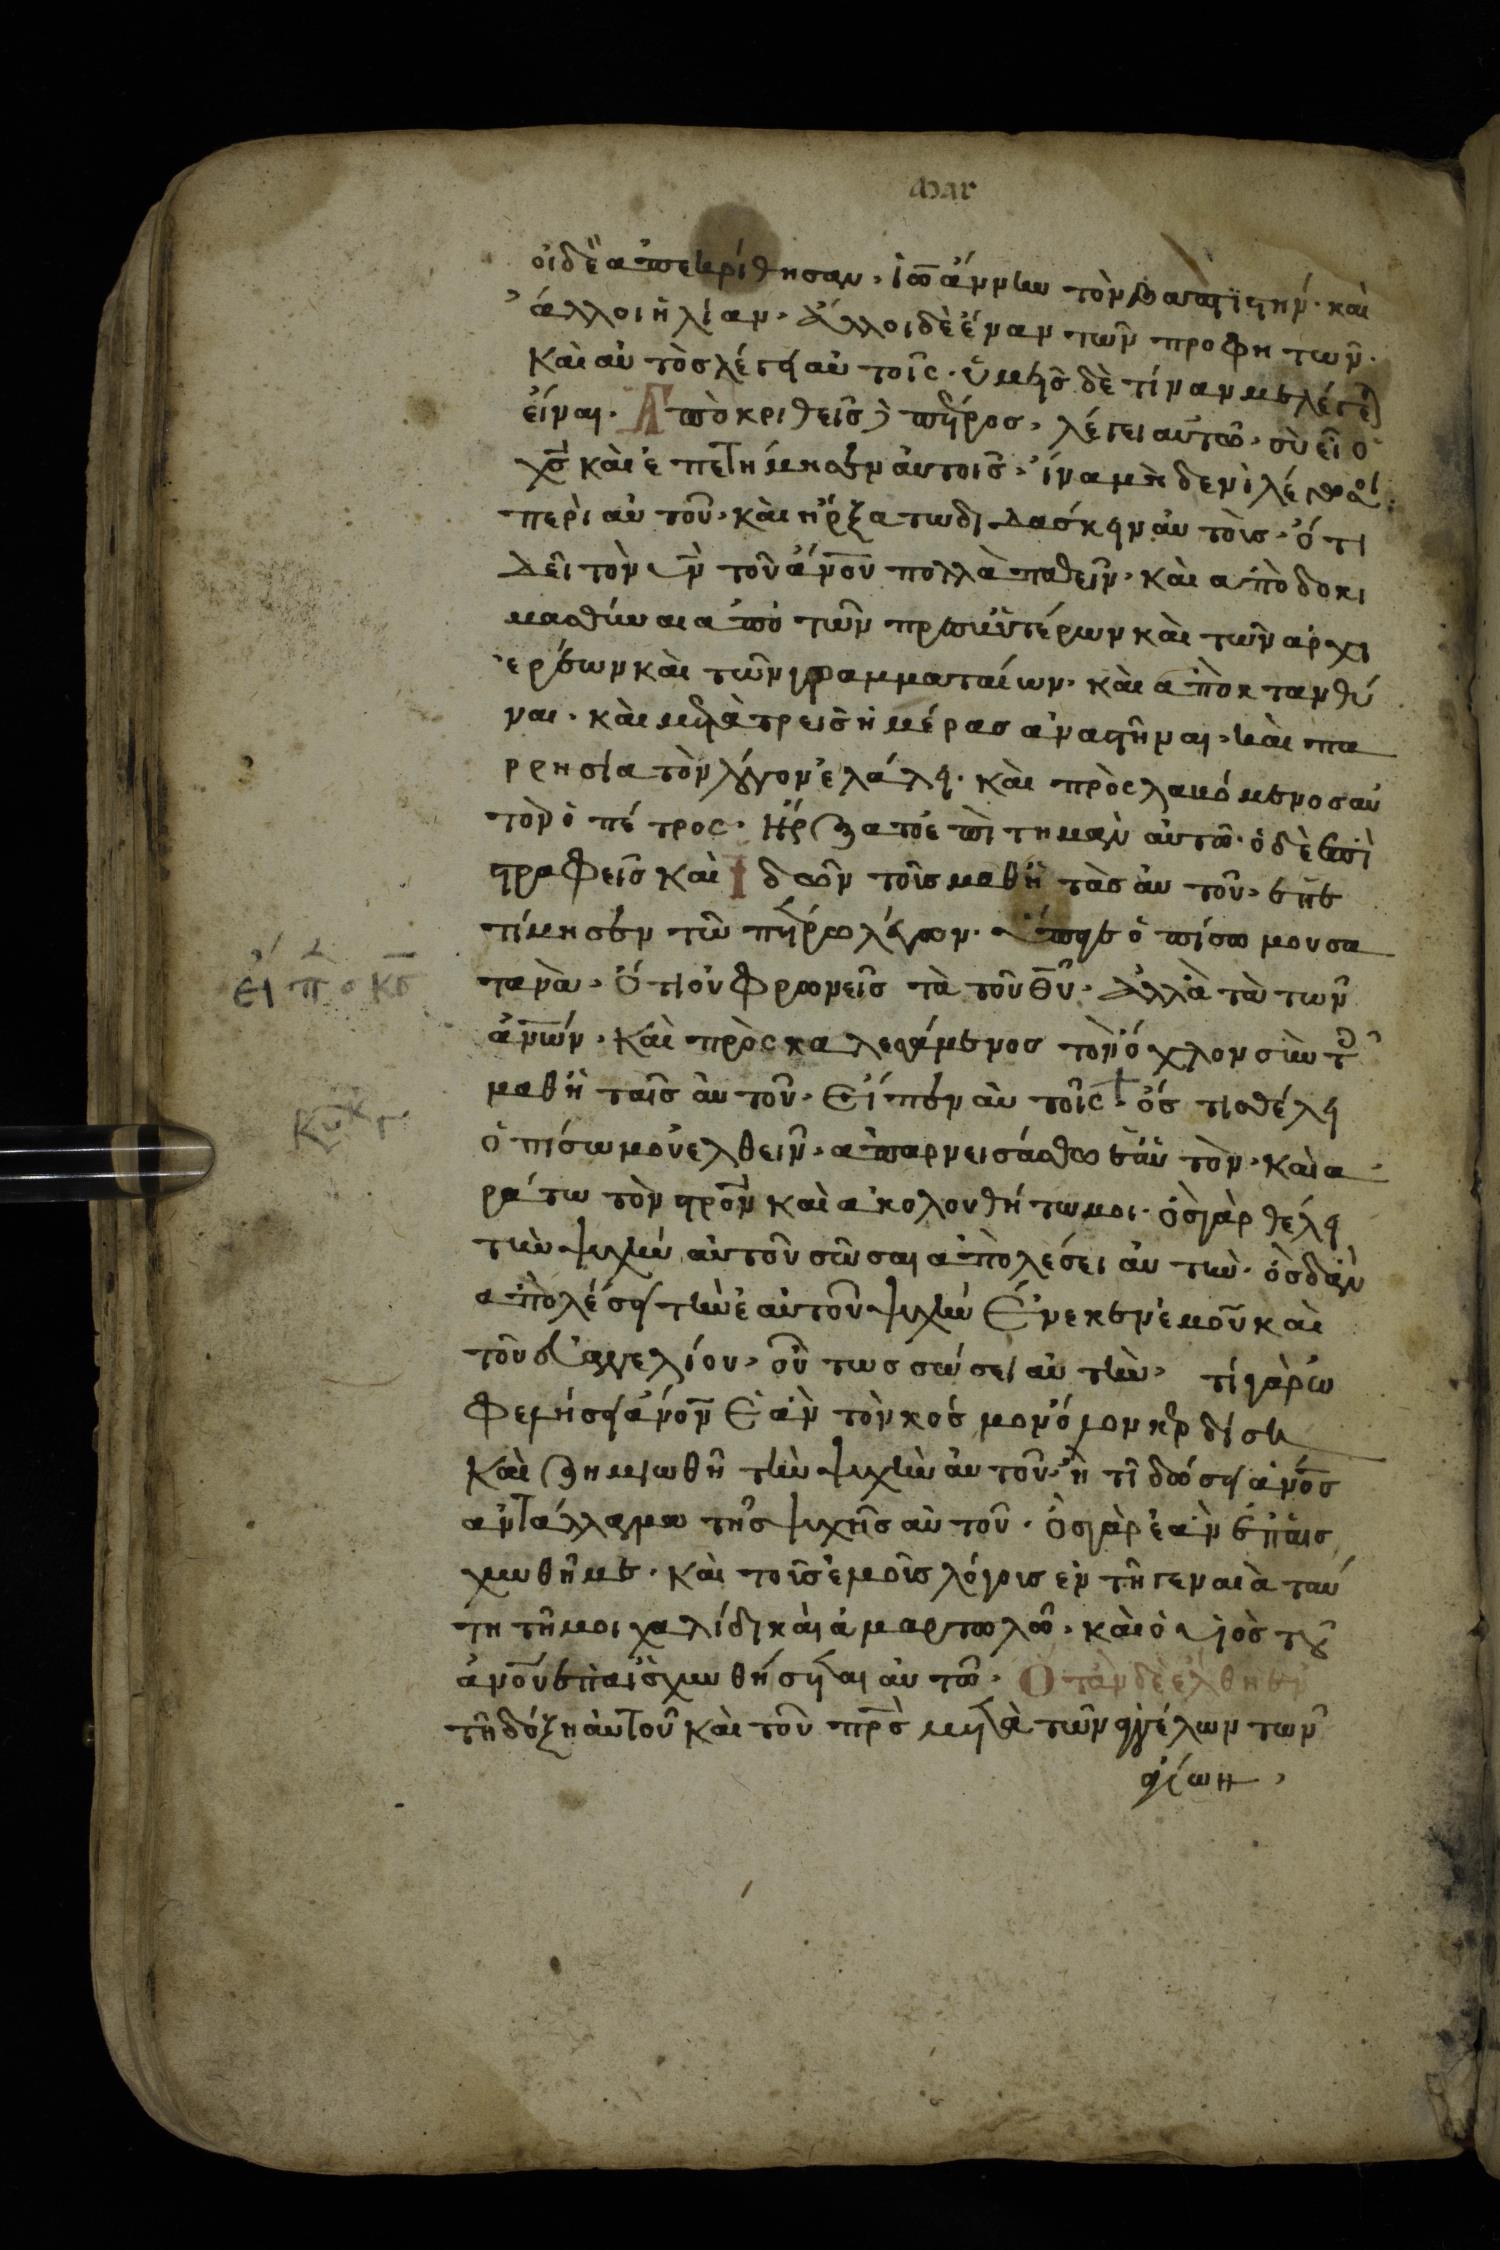 Mar
οἱ δὲ ἀπεκρίθησαν· ἰωάννην τὸν βαπτιστήν· καὶ
ἄλλοι ἠλίαν· ἄλλοι δὲ ἕναν τῶν προφητῶν·
Καὶ αὐτὸς λέγει αὐτοῖς· ὑμεῖς δὲ τίναν με λέγετε
εἶναι· Ἀποκριθεὶς ὁ πέτρος· λέγει αὐτῶ· σὺ εἶ ὁ
χς καὶ ἐπετίμησεν αὐτοῖς· ἵνα μηδενὶ λέγωσι
περὶ αὐτοῦ· καὶ ἤρξατω διδασκειν αὐτοῖς· ὅτι
Δεῖ τὸν υν τοῦ ἀνου πολλὰ παθεῖν· καὶ ἀποδοκι
μασθῆναι ἀπὸ τῶν πρεσβυτέρων καὶ τῶν ἀρχι
ερέων καὶ τῶν γραμματαίων· καὶ ἀποκτανθῆ
ναι· καὶ μετὰ τρεῖς ἡμέρας ἀναστῆναι· καὶ πα
ρρησία τὸν λόγον ἐλάλει· καὶ πρὸςλαβόμενος αὐ
τὸν ὁ πέτρος· Ἤρζατο ἐπιτημαν αὐτῶ· ὁ δὲ ἐπι
στραφεὶς καὶ Ἰδῶν τοῖς μαθητὰς αὐτοῦ· ἐπε
τίμησεν τῶ πέτρω λέγων· ὕπαγε ὀπίσω μου σα
τανὰ· Ὅτι οὐ φρωνεῖς τὰ τοῦ θυ· Ἀλλὰ τὰ τῶν
ἀνων· Καὶ πρὸςκαλεσάμενος τὸν ὄχλον σὺν τοῖς
μαθηταῖς αὐτοῦ· Εἶπεν αὐτοῖς· ὅς τις θέλει
ὀπίσω μου ἐλθεῖν· ἀπαρνεισάσθω ἑαυτὸν· καὶ ἀ
ράτω τὸν στρον καὶ ἀκολουθήτω μοι· ὃς γὰρ θέλει
τὴν ψυχὴν αὐτοῦ σῶσαι ἀπολέσει αὐτὴν· ὃς δ ἂν
ἀπολέσει τὴν ἑαυτοῦ ψυχὴν Ἕνεκεν ἐμοῦ καὶ
τοῦ εὐαγγελίου· οὕτως σώσει αὐτὴν· τί γὰρ ὠ
φελήσει ἀνον Ἐὰν τὸν κόσμον ὅλον κερδίσει
Καὶ ζημιωθῆ τὴν ψυχὴν αὐτοῦ· ἢ τί δώσει ἀνος
ἀντάλλαγμα τῆς ψυχῆς αὐτοῦ· Ὃς γὰρ ἐὰν ἐπαις
χυνθῆ με· καὶ τοῖς ἐμοῖς λόγοις ἐν τῆ γεναιὰ ταύ
τη τῆ μοιχαλίδι καὶ ἁμαρτωλῶ· καὶ ὁ υἱὸς τοῦ
ἀνου ἐπαισχυνθήσεται αὐτῶ· Ὁτὰν δὲ ἔλθη ἐν
τῆ δόξη αὐτοῦ καὶ τοῦ πρς μετὰ τῶν ἀγγέλων τῶν
ἁγίων·
εἶπ ο κς